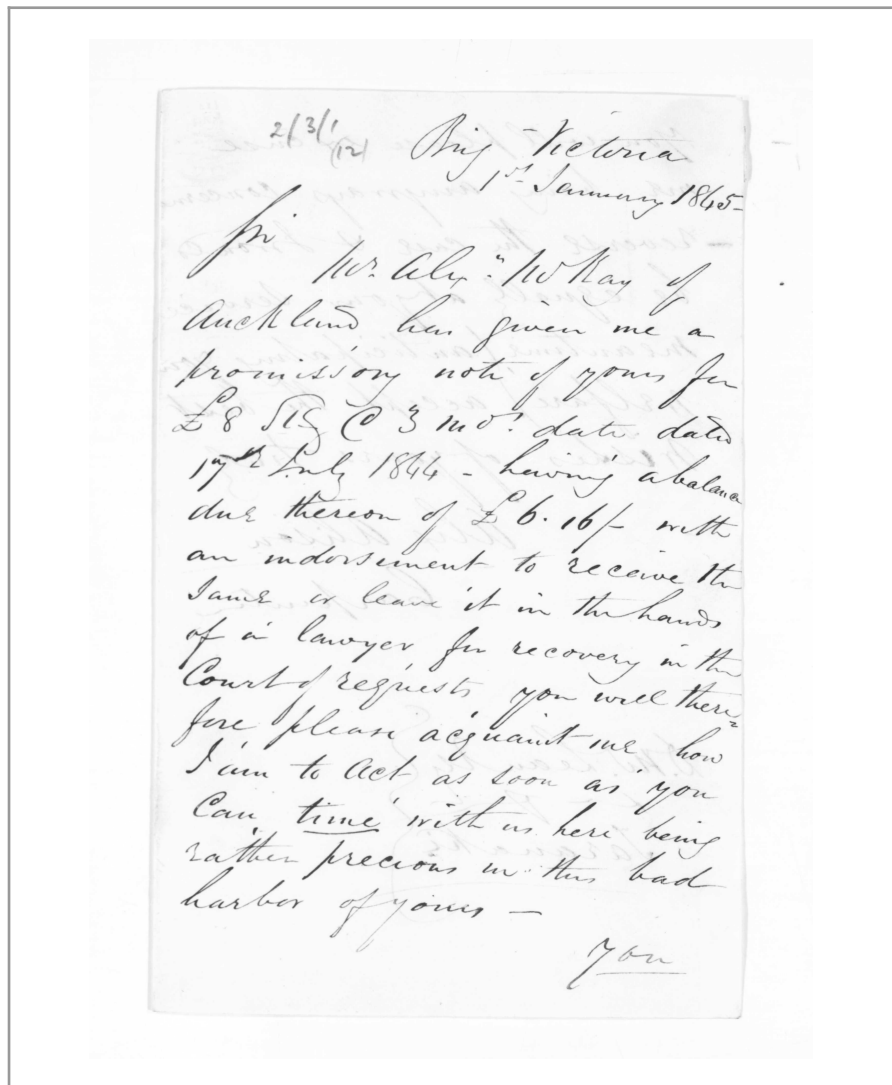 2/3/1
(12)
Brig Victoria
1st January 1845-
Sir
Mr. Alexr. McKay of
Auckland has given me a
promissory note of yours for
£8 Stg @ 3 mos. date dated
17th July 1844 - having a balance
due thereon of £6.16/- with
an indorsement to receive the
same or leave it in the hands
of a lawyer for recovery in the
Court of requests you will there=
fore please acquaint me how
I am to act as soon as you
can time with us here being
rather precious in this bad
harbor of yours —
You